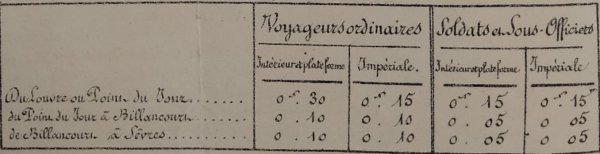 Voyageurs ordinaires Soldats et Sous-Officiers
Intérieur et plateforme Impériale. Intérieur et plateforme Impériale
Du Louvre au Point du Jour....... 0 fr. 30 0 fr. 15 0 fr. 15 0 fr. 15
du Point du Jour à Billancourt...... 0. 10 0. 10 0. 05 0 05
de Billancourt à Sèvres........ 0. 10 0. 10 0. 05 0 05